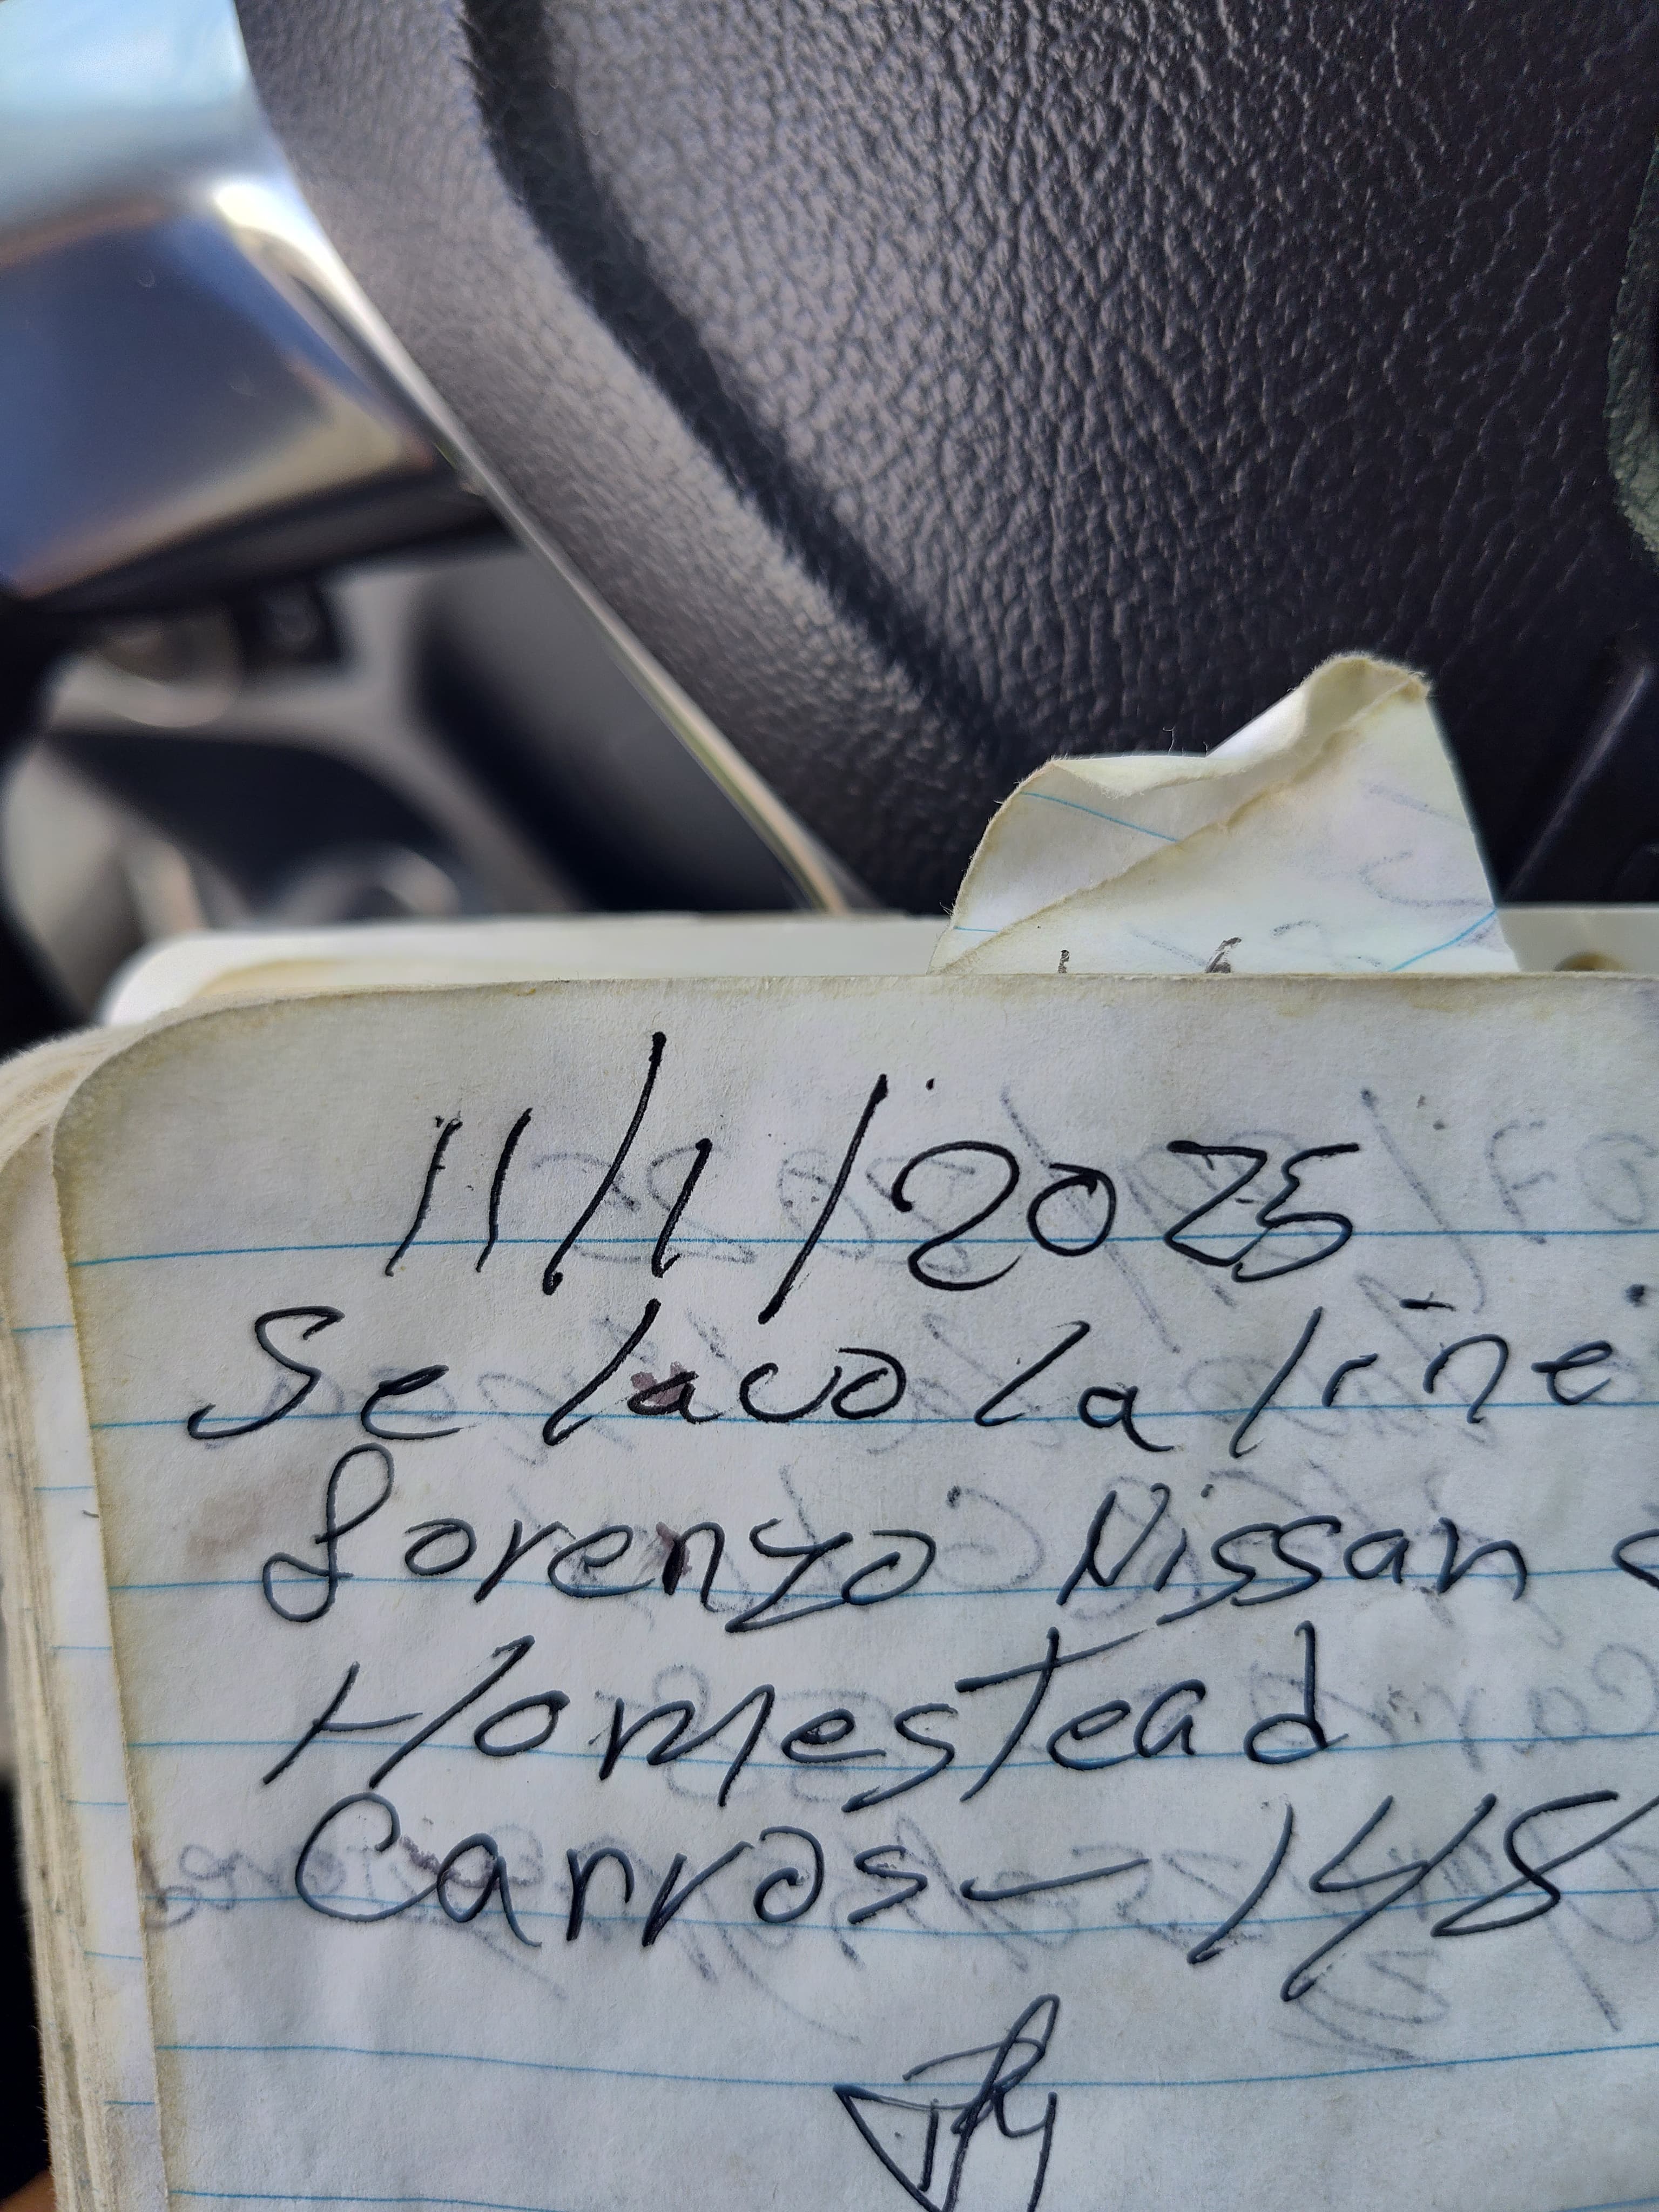 11/1/2025
Se lavo la line
Lorenzo Nissan
Homestead
Carros - 148